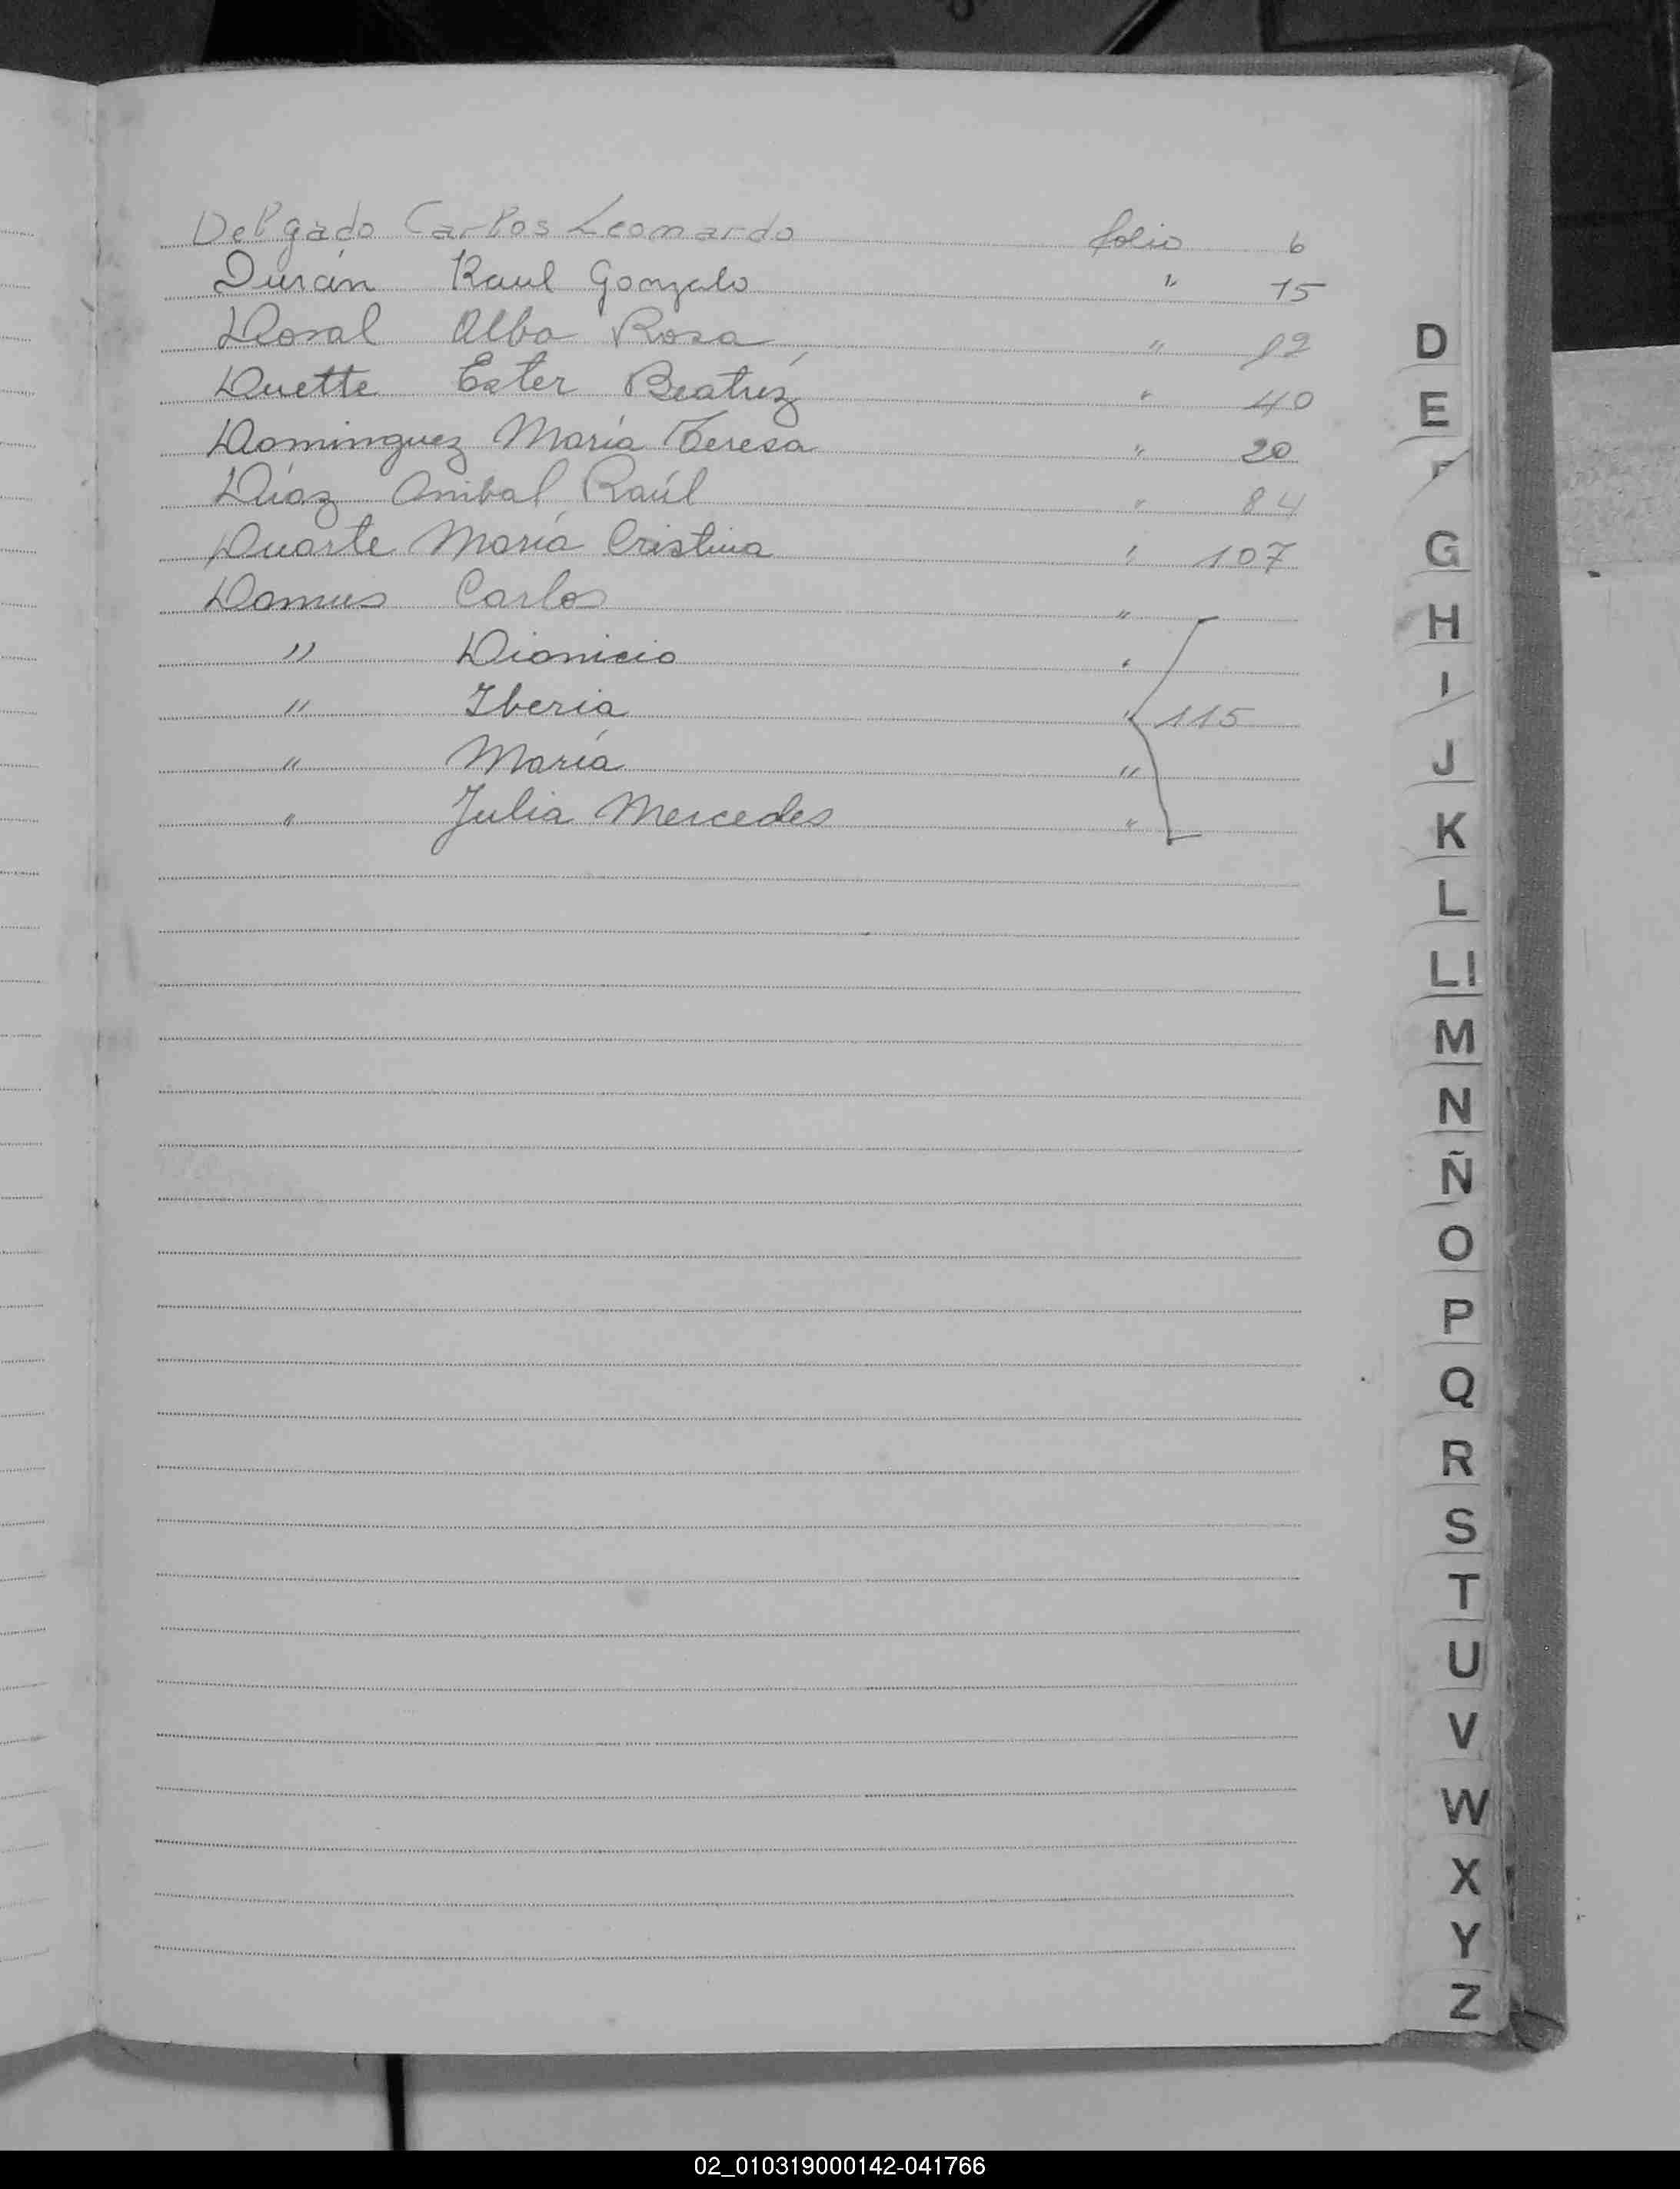 Delgado Carlos Leonardo folio 6
Durán Raul Gonzalo " 15
Dosal Alba Rosa "
Duette Ester Beatríz " 40
Dominguez María Teresa " 20
Díaz Anibal Raúl " 84
Duarte María Cristina " 107
Damus Carlos "
" Dionicio "
" Iberia " 115
" María "
" Julia Mercedes "
D
E
F
G
H
I
J
K
L
Ll
M
N
Ñ
O
P
Q
R
S
T
U
V
W
X
Y
Z
02_010319000142-041766